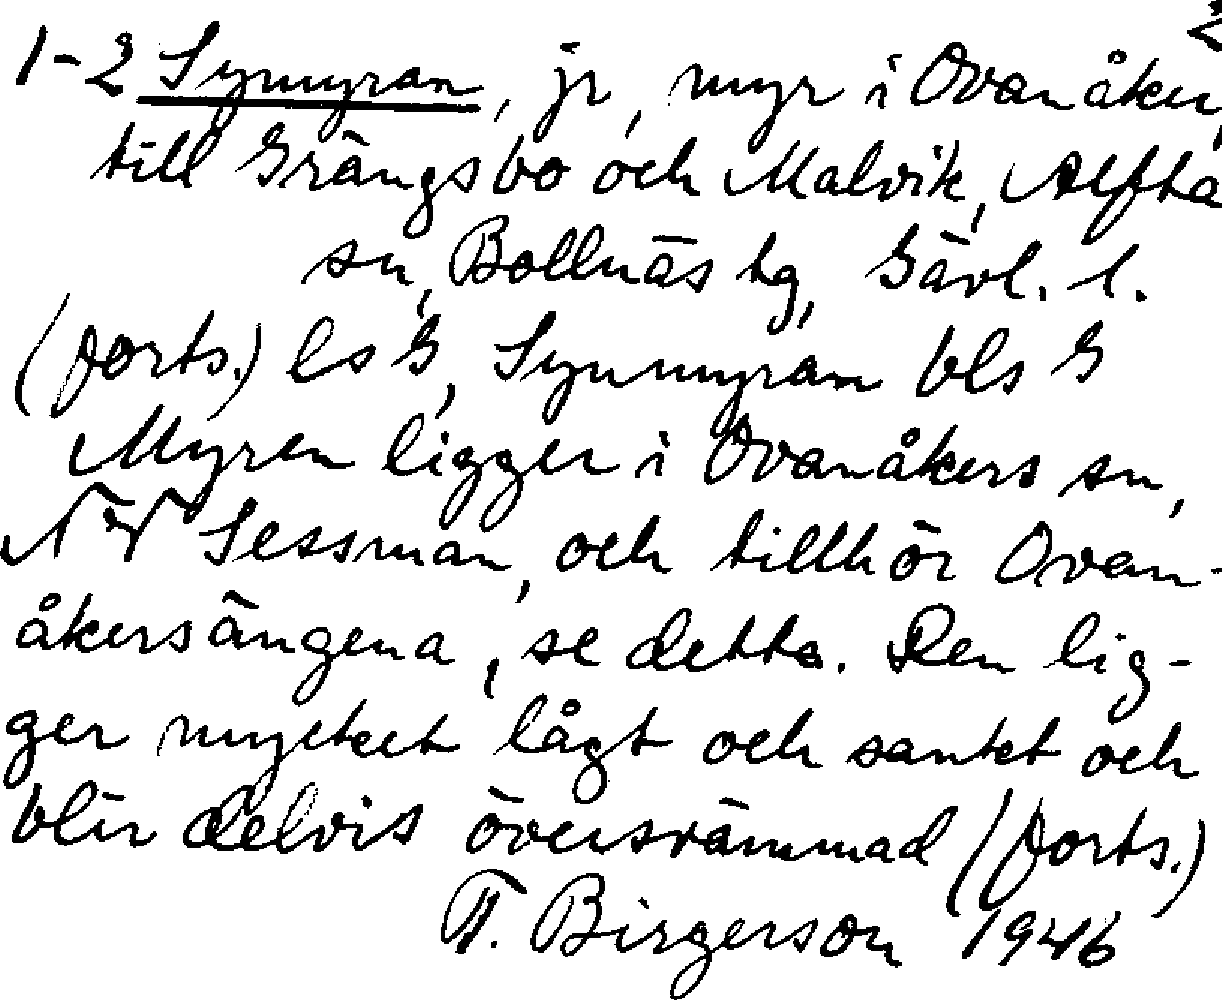 2
1-2 Synmyran, jr, myr i Ovanåker,
till Grängsbo och Malvik, Alfta
sn, Bollnäs tg, Gävl. l.
(forts.) ls G, Synmyran bls G
Myren ligger i Ovanåkers sn,
NV Sessman, och tillhör Ovan-
åkersängena, se detta. Den lig-
ger mycket lågt och sankt och
blir delvis översvämmad (forts.)
T. Birgerson 1946